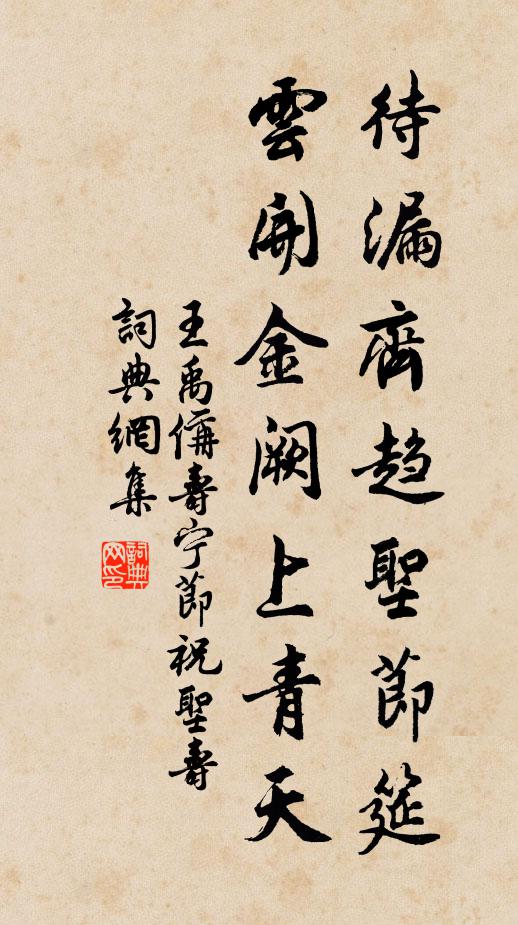 待漏齊趨聖節筵
雲開金闕上青天
王禹偁壽宁節祝聖壽
詞典網集
詞典網印